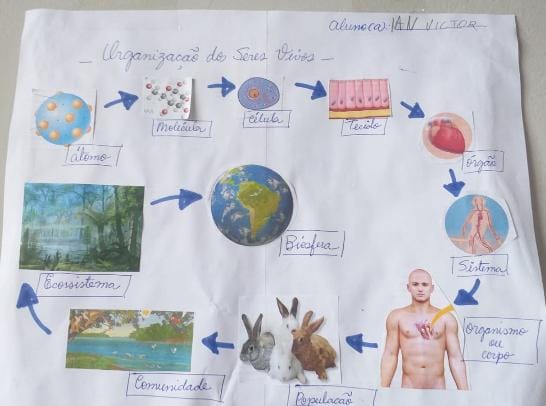 aluno(a): IAN VICTOR
Organização do Seres Vivos
átomo
Molécula
Célula
Tecido
Órgão
Sistema
Organismo
ou
corpo
População
Comunidade
Ecossistema
Biosfera